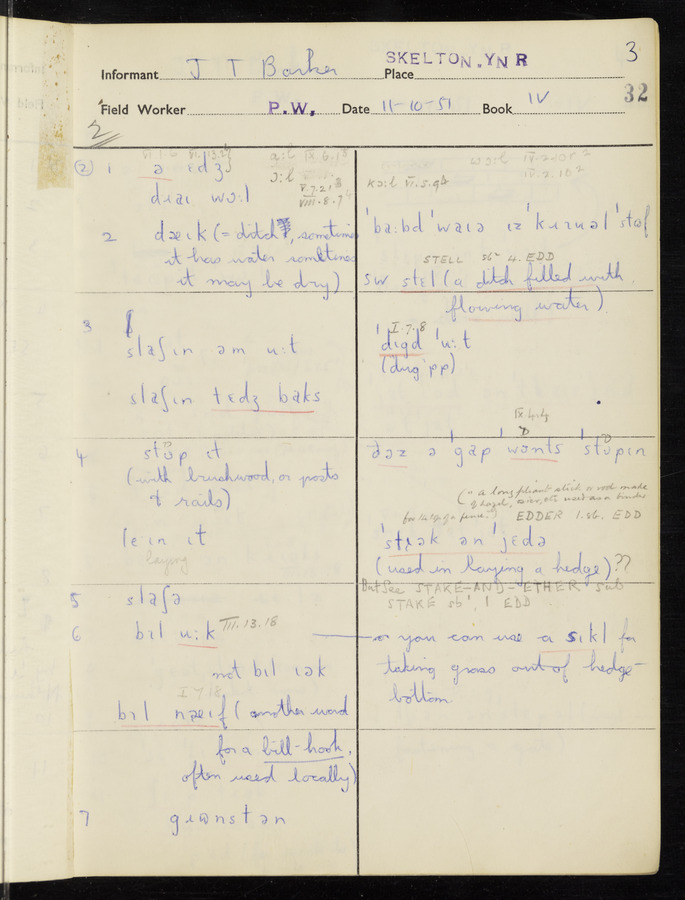 SKELTON. YNR
3
Informant J T Barker Place
32
Field Worker P.W. Date 11-10-51 Book IV
2
(2) 1 ə ɛdʒ
VI.1.6 VI.13.2
a:l IX.6.1
ɔ:l
V.7.21
VIII.8.7
drai wɔ:l
2 dæɪk (= ditch, sometimes
it has water sometimes
it may be dry)
3
slaʃɪn əm u:t
slaʃɪn tɛdʒ baks
4 stʊp ɪt
(with brushwood, or posts
& rails)
le:ɪn ɪt
laying
5 slaʃə
6 bɪl u:k III.13.18
not bɪl ɪək
I.7.18
bɪl næɪf (another word
for a bill-hook,
often used locally)
7 grʊnstən
kɔ:l VI.5.9
ˈba:bd ˈwaɪə ɪz ˈkɪʊəl ˈstʊf
STELL sb 4. EDD
SW stɛl (a ditch filled with
flowing water)
I.7.8
ˈdɪgd ˈu:t
(dug pp)
IX.4.4
ðəz ə ˈgap ˈwɒnts ˈstʊpɪn
(= a long pliant stick or rod made
of hazel, osier, etc used as a binder
for the top of a fence.) EDDER 1.sb. EDD
ˈstɪək ən ˈjɛdə
(used in laying a hedge)??
But see STAKE-AND-ETHER sub
STAKE sb¹. 1 EDD
or you can use a sɪkl for
taking grass out of hedge-
bottom